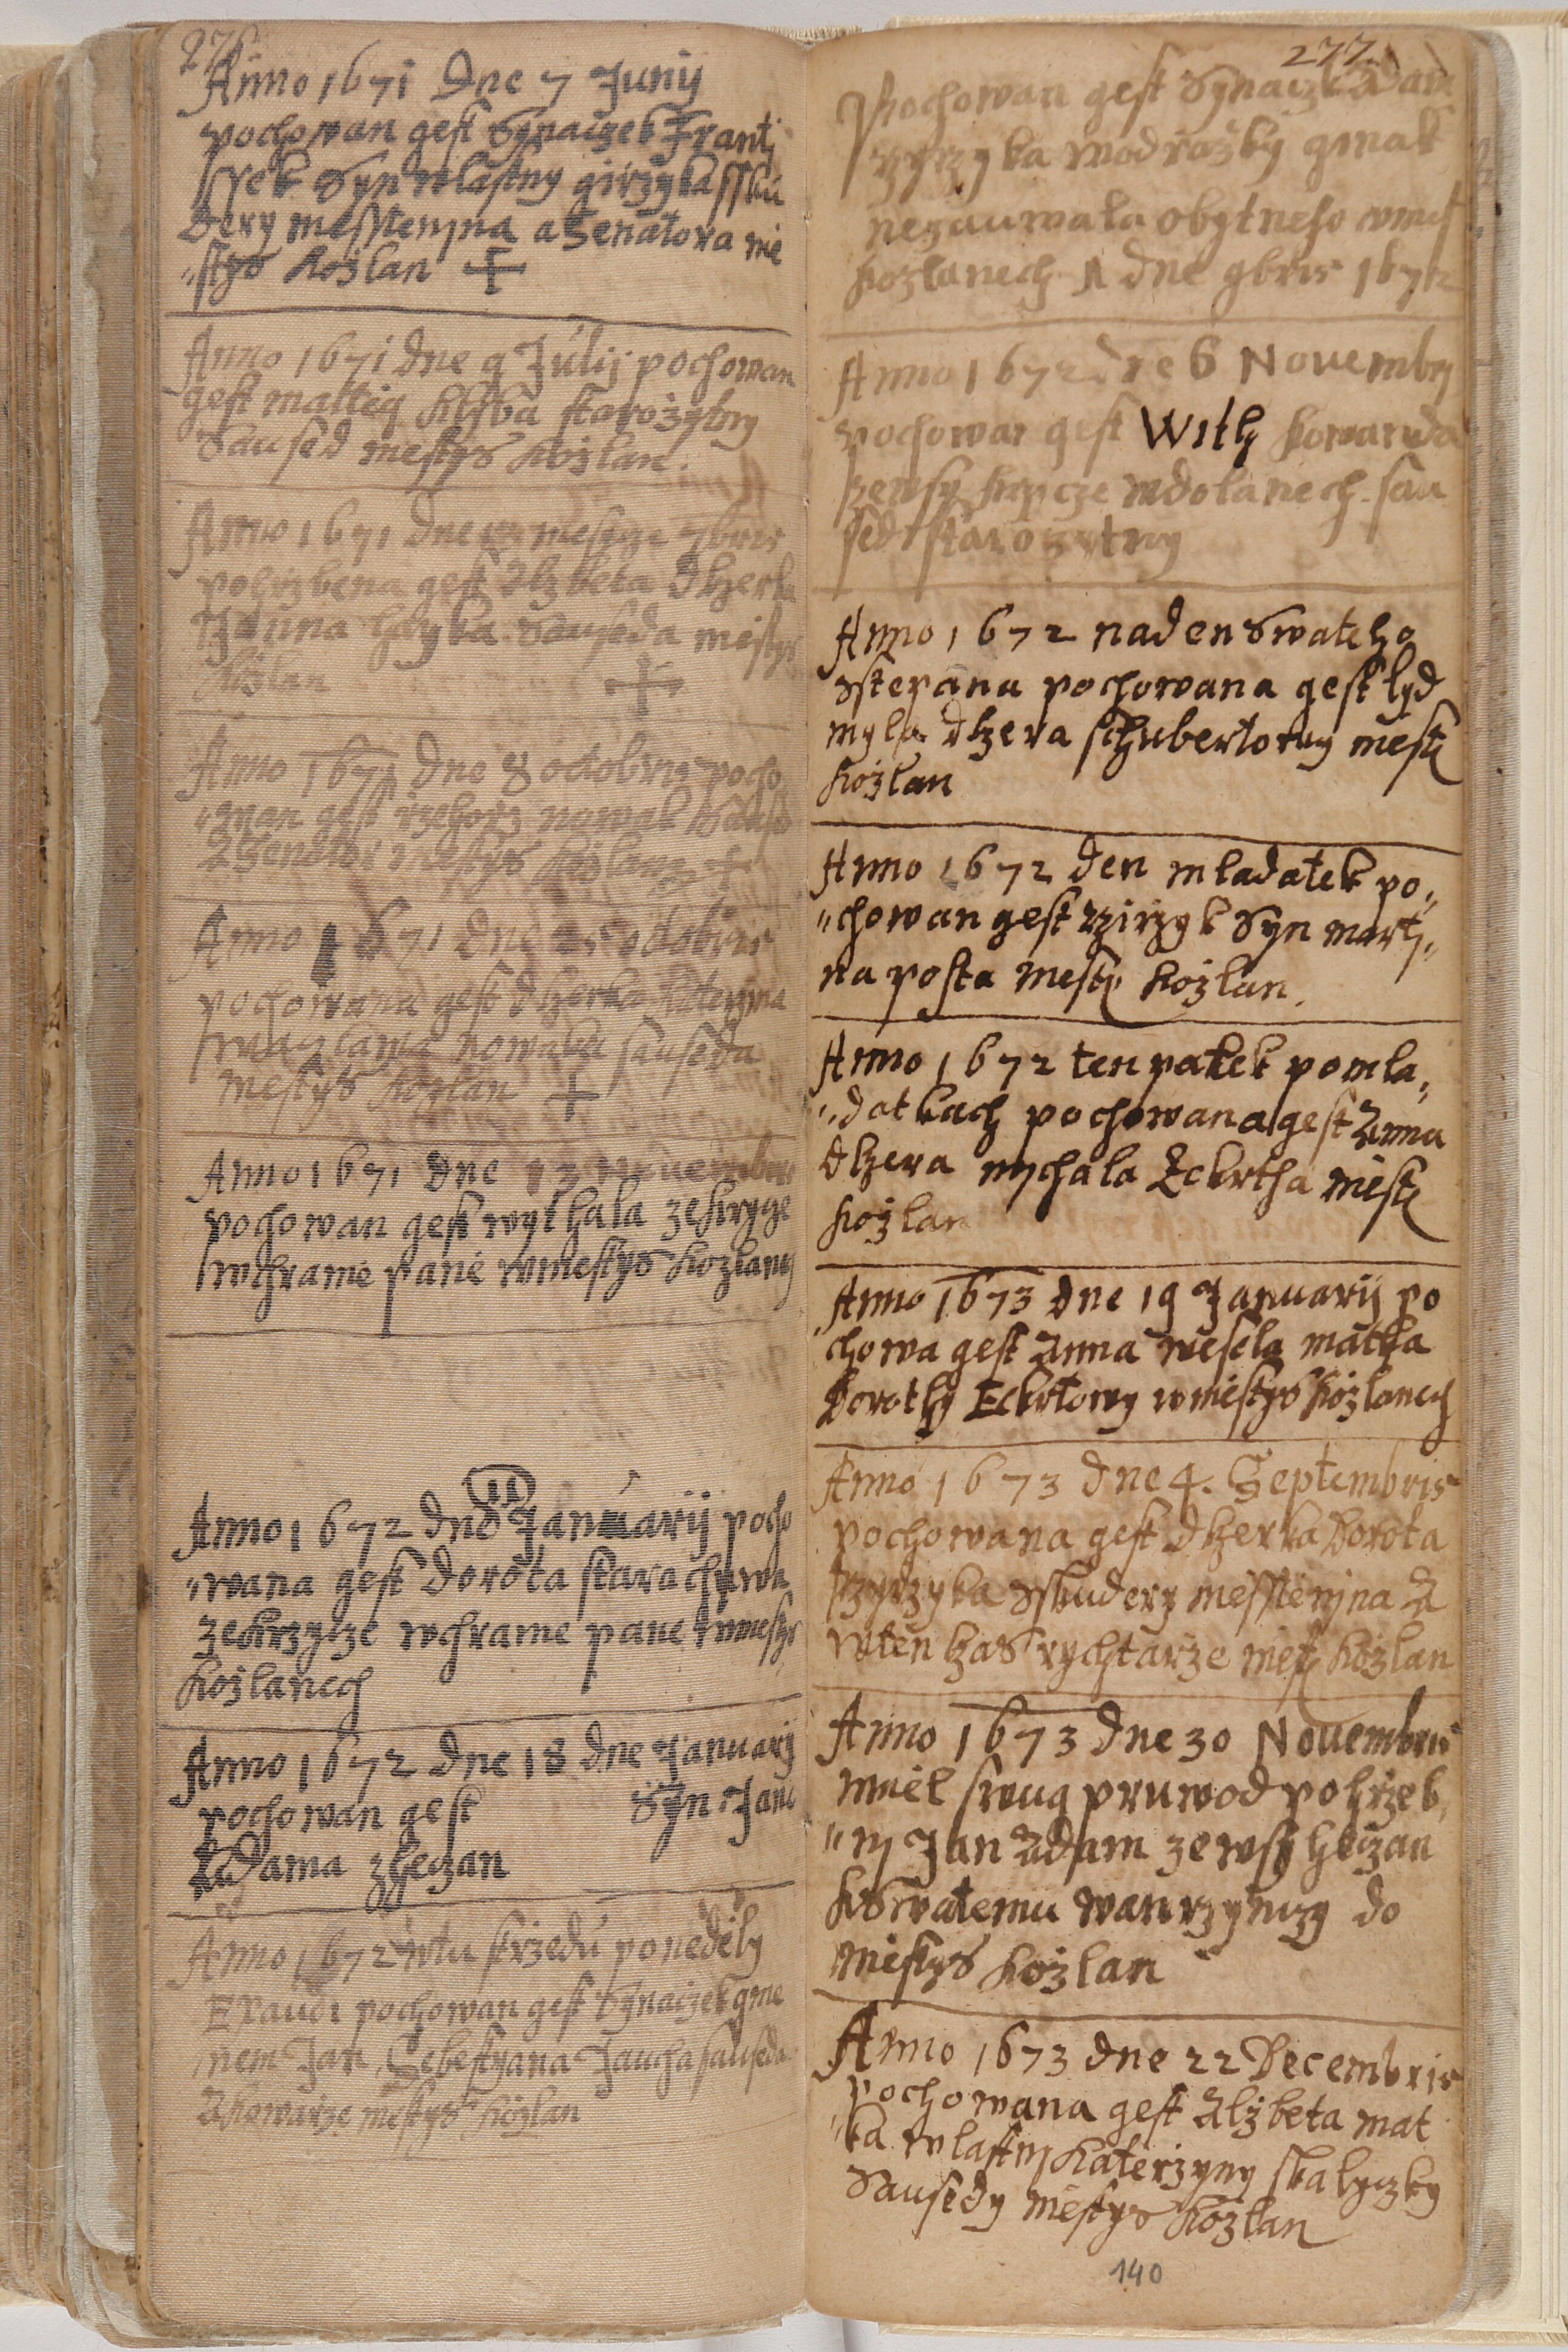 276
Anno 1671 Dne 7 Junij
pochowan gest Synaczek Frantj
ssek Syn wlastny girzyka sskú
dery messtenjna a Senatora me
"stys Kožlan +
Anno 1671 dne 9 Júlij pochowan
gest mattieg starožytny
Saused mestys Kožlan.
Anno 1671 Dne mesyce 7bris
pohrzbena gest Alzbeta dczerka
Sauseda mestys
Kožlan +
Anno 1671 Dne 8 octobris pocho
"wan gest rzehorz nowak Saused
A Senator mestys Kožlan +
Anno
pochowana gest dczerka Katerzina
nowaka sauseda
mestys Kožlan +
Anno 1671 dne 13 Nouembris
pochowan gest wythala zekryge
wchrame pane wmestys Kozlanij
11
Anno 1672 dne Januarij pocho
"wana gest dorota stara
zekrzyze wchrame pane wmestys
Kožlanech
Anno 1672 dne 18 dne Januarij
pochowan gest Syn Jana
Adama zhedczan
Anno 1672 wtu strzedu ponedely
Exaudi pochowan gest Synaczek gme
nem Jan Sebestyana Jaucha sauseda
A kowarze mestys Kožlan
277
Pochowan gest Synaczek Adam
wodražky ginak
obytneho wmest
Kozlanech dne 9bris 1672
Anno 1672 dne 6 Nouembrj
pochowan gest With
zewsy wdolanech sau
sed starozytny
Anno 1672 naden Swateho
Sstepána pochowana gest lyd
myla dczera schubertowy mest
Kožlan
Anno 1672 den mladatek po„
"chowan gest rzirzyk Syn marti„
na posta mesty Kožlan.
Anno 1672 ten patek pomla„
"datkach pochowana gest Anna
dczera mychala Eckrtha mest
Kožlan
Anno 1673 Dne 19 Januarij po
chowa gest Anna wesela matka
Dorothy Eckrtowy wmestys Kožlanech
Anno 1673 dne 4. Septembris
pochowana gest dczerka Dorota
rzyrzyka Sskudery messtenjna A
wten czas rychtarze mest Kožlan
Anno 1673 Dne 30 Nouembris
miel swug pruwod pohrzeb
"nj Jan Adam zewsy hedczan
kSwatemu wawrzynczy do
mestys Kožlan
Anno 1673 dne 22 Decembris
pochowana gest Alžbeta mat
"ka wlastnj Katerzyny skalyczky
Sausedy mestys Kožlan
140